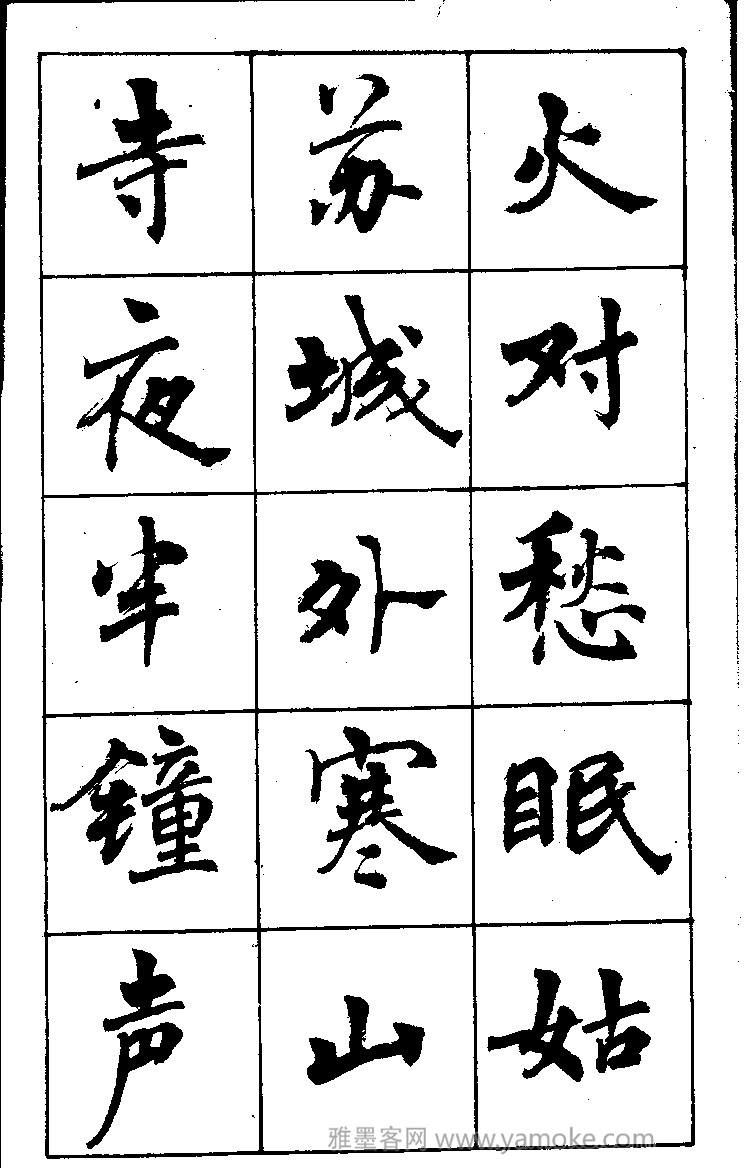 火对愁眠姑
苏城外寒山
寺夜半钟声
雅墨客网 www.yamoke.com